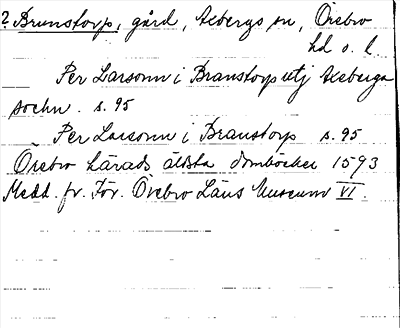 ? Brunstorp, gård, Axbergs sn, Örebro
hd o. l.
Per Larsonn i Branstorp utj Axberga
sochn. s. 95
Per Larsonn i Branstorp s. 95
Örebro härads äldsta domböcker 1593
Medd. fr. För. Örebro Läns Museum VI.